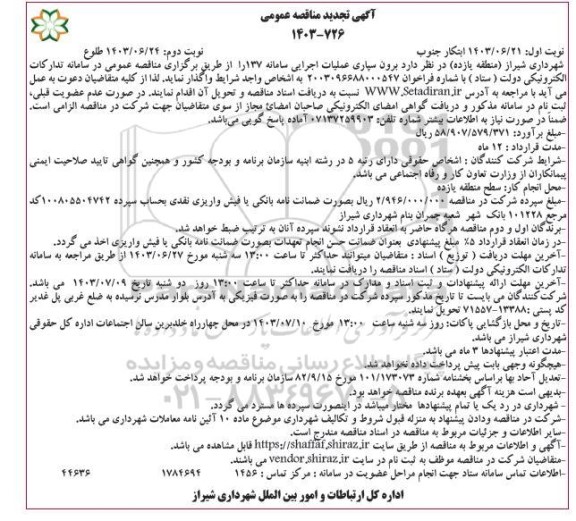 آگهی تجدید مناقصه عمومی
۱۴۰۳-۷۲۶
نوبت اول: ۱۴۰۳/۰۶/۲۱ ابتکار جنوب نوبت دوم: ۱۴۰۳/۰۶/۲۴ طلوع
شهرداری شیراز (منطقه یازده) در نظر دارد برون سپاری عملیات اجرایی سامانه ۱۳۷را از طریق برگزاری مناقصه عمومی در سامانه تدارکات
الکترونیکی دولت ( ستاد ) با شماره فراخوان ۲۰۰۳۰۹۶۶۸۸۰۰۰۵۴۷ به اشخاص واجد شرایط واگذار نماید. لذا از کلیه متقاضیان دعوت به عمل
می آید با مراجعه به آدرس WWW.Setadiran.ir نسبت به دریافت اسناد مناقصه و تحویل آن اقدام نمایند. در صورت عدم عضویت قبلی،
ثبت نام در سامانه مذکور و دریافت گواهی امضای الکترونیکی صاحبان امضائ مجاز از سوی متقاضیان جهت شرکت در مناقصه الزامی است.
ضمناً در صورت نیاز به اطلاعات بیشتر شماره تلفن: ۰۷۱۳۷۲۵۹۹۰۳ آماده پاسخ گویی می‌باشد.
-مبلغ برآورد: ۵۸/۹۰۷/۵۷۹/۳۷۱ ریال
-مدت قرارداد : ۱۲ ماه
-شرایط شرکت کنندگان : اشخاص حقوقی دارای رتبه ۵ در رشته ابنیه سازمان برنامه و بودجه کشور و همچنین گواهی تایید صلاحیت ایمنی
پیمانکاران از وزارت تعاون کار و رفاه اجتماعی می باشد.
-محل انجام کار: سطح منطقه یازده
-مبلغ سپرده شرکت در مناقصه ۲/۹۴۶/۰۰۰/۰۰۰ ریال بصورت ضمانت نامه بانکی یا فیش واریزی نقدی بحساب سپرده ۱۰۰۸۰۵۵۰۴۷۴۲کد
مرجع ۱۰۱۲۲۸ بانک شهر شعبه چمران بنام شهرداری شیراز
-برندگان اول و دوم مناقصه هرگاه حاضر به انعقاد قرارداد نشوند سپرده آنان به ترتیب ضبط خواهد شد.
-در زمان انعقاد قرارداد ۵٪ مبلغ پیشنهادی بعنوان ضمانت حسن انجام تعهدات بصورت ضمانت نامه بانکی یا فیش واریزی اخذ می گردد.
-آخرین مهلت دریافت ( توزیع ) اسناد : متقاضیان میتوانند حداکثر تا ساعت ۱۳:۰۰ سه شنبه مورخ ۱۴۰۳/۰۶/۲۷ از طریق مراجعه به سامانه
تدارکات الکترونیکی دولت ( ستاد ) اسناد مناقصه را دریافت نمایند.
-آخرین مهلت ارائه پیشنهادات و ثبت اسناد و مدارک در سامانه حداکثر تا ساعت ۱۳:۰۰ روز دو شنبه تاریخ ۱۴۰۳/۰۷/۰۹ می باشد.
شرکت‌کنندگان می بایست تا تاریخ مذکور سپرده شرکت در مناقصه را به صورت فیزیکی به آدرس بلوار مدرس نرسیده به ضلع غربی پل غدیر
کد پستی :۱۳۳۸۸-۷۱۵۵۷ تحویل نمایند.
-تاریخ و محل بازگشایی پاکات: روز سه شنبه ساعت ۱۳:۰۰ مورخ ۱۴۰۳/۰۷/۱۰ در محل چهارراه خلدبرین سالن اجتماعات اداره کل حقوقی
شهرداری شیراز می باشد.
-مدت اعتبار پیشنهادها ۳ ماه می باشد.
-هیچگونه وجهی بابت پیش پرداخت داده نخواهد شد.
-تعدیل آحاد بها براساس بخشنامه شماره ۱۰۱/۱۷۳۰۷۳ مورخ ۸۲/۹/۱۵ سازمان برنامه و بودجه پرداخت خواهد شد.
-بدیهی است هزینه آگهی بعهده برنده مناقصه خواهد بود.
- شهرداری در رد یک یا تمام پیشنهادها مختار میباشد در اینصورت سپرده ها مسترد می گردد.
-شرکت در مناقصه ودادن پیشنهاد به منزله قبول شروط و تکالیف شهرداری موضوع ماده ۱۰ آئین نامه معاملات شهرداری می باشد.
-سایر اطلاعات و جزئیات مربوط به مناقصه در اسناد مناقصه مندرج است.
-آگهی و اطلاعات مربوط به مناقصه از طریق سایت https://shaffaf.shiraz.ir قابل مشاهده می باشد.
-متقاضیان شرکت در مناقصه موظف به ثبت نام در سایت vendor.shiraz.ir می باشند.
-اطلاعات تماس سامانه ستاد جهت انجام مراحل عضویت در سامانه : مرکز تماس : ۱۴۵۶ ۱۷۸۴۶۹۴ ۴۴۶۳۶
اداره کل ارتباطات و امور بین الملل شهرداری شیراز